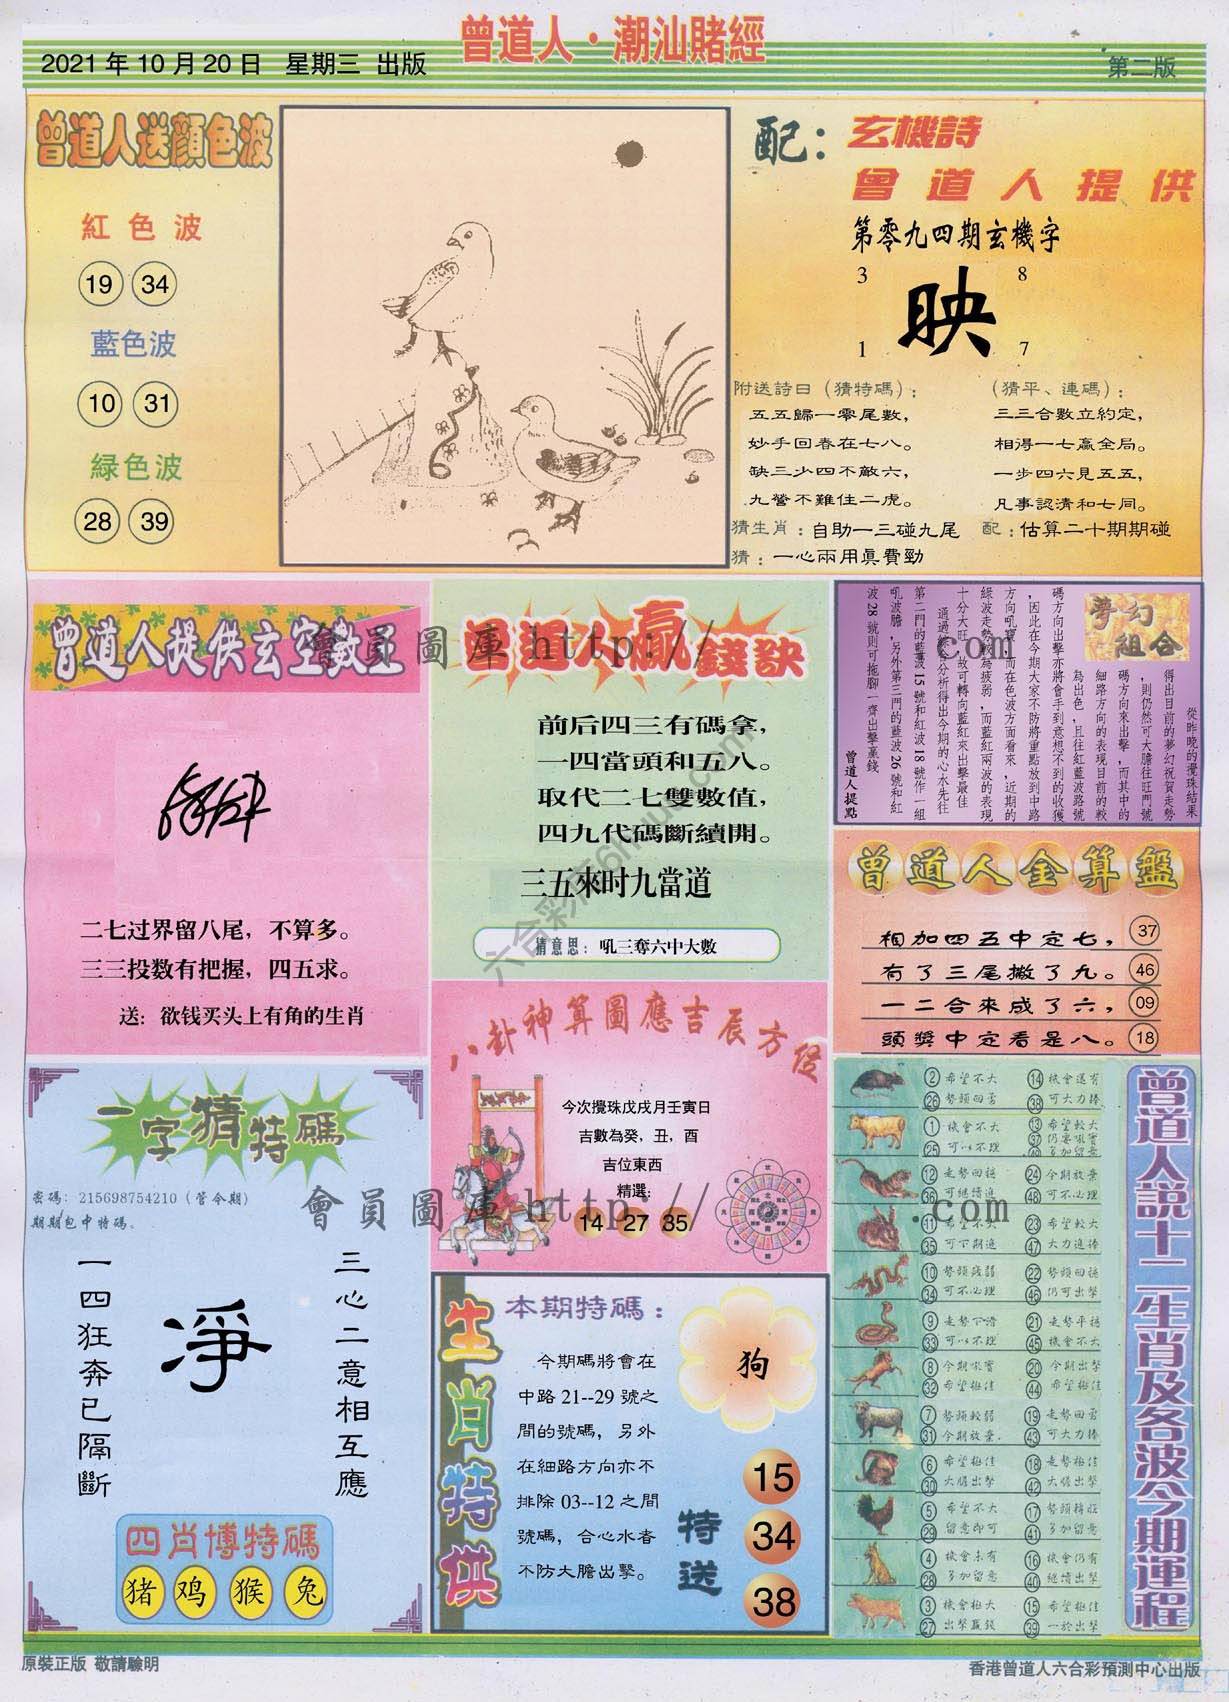 2021 年 10 月 20 日 星期三 出版
曾道人·潮汕賭經
第二版
曾道人送顏色波
紅色波
19 34
藍色波
10 31
緑色波
28 39
配：玄機詩
曾道人提供
第零九四期玄機字
3 8
映
1 7
附送詩曰（猜特碼）：
五五歸一零尾數，
妙手回春在七八。
缺三少四不敵六，
九營不難住二虎。
（猜平、連碼）：
三三合數立約定，
相得一七贏全局。
一步四六見五五，
凡事認清和七同。
猜生肖：自助一三碰九尾 配：估算二十期期碰
猜：一心兩用真費勁
曾道人提供玄空數王
二七过界留八尾，不算多。
三三投数有把握，四五求。
送：欲钱买头上有角的生肖
曾道人贏錢訣
前后四三有碼拿，
一四當頭和五八。
取代二七雙數值，
四九代碼斷續開。
三五來时九當道
猜意思：吼三奪六中大數
夢幻組合
從昨晚的攪珠結果
得出目前的夢幻祝賀走勢
，則仍然可大膽往旺門號
碼方向來出擊，而其中的
細路方向的表現目前的較
為出色，且往紅藍波路號
碼方向出擊亦將會手到意想不到的收獲
，因此在今期大家不防將重點放到中路
方向吼寶，而在色波方面看來，近期的
綠波走勢較為疲弱，而藍紅兩波的表現
十分大旺，故可轉向藍紅來出擊最佳
，通過綜合分析得出今期的心水先往
第二門的藍波 15 號和紅波 18 號作一組
吼波膽，另外第三門的藍波 26 號和紅
波 28 號則可拖腳一齊出擊贏錢
曾道人提點
曾道人金算盤
相加四五中定七， 37
有了三尾撇了九。 46
一二合來成了六， 09
頭獎中定看是八。 18
八卦神算圖應吉辰方位
今次攪珠戊戌月壬寅日
吉數為癸，丑，酉
吉位東西
精選：
14 27 35
一字猜特碼
密碼：215698754210（管令期）
期期包中特碼。
三心二意相互應
淨
一四狂奔已隔斷
四肖博特碼
猪 鸡 猴 兔
生肖特供
本期特碼：
狗
今期碼將會在
中路 21--29 號之
間的號碼，另外
在細路方向亦不
排除 03--12 之間
號碼，合心水者
不防大膽出擊。
特送
15
34
38
曾道人説十二生肖及各波今期運程
2 希望不大 14 機會還有
26 勢頭回勇 38 可大力捧
1 機會不大 13 希望較大
25 可以不理 37 仍要吼實
49 多加留意
12 走勢回穩 24 今期放棄
36 可繼續追 48 可不必理
11 希望不大 23 希望較大
35 可下期追 47 大力追捧
10 勢頭疲弱 22 勢頭回穩
34 可不必理 46 仍可出擊
9 走勢下滑 21 走勢平穩
33 可以不理 45 機會不大
8 今期吼實 20 今期出擊
32 希望極佳 44 希望極佳
7 勢頭較弱 19 走勢回勇
31 今期放棄 43 可大力捧
6 希望極佳 18 走勢極佳
30 大膽出擊 42 大膽出擊
5 希望不大 17 勢頭轉旺
29 留意即可 41 多加留意
4 機會未有 16 機會仍有
28 多加留意 40 繼續出擊
3 機會極大 15 希望極佳
27 出擊贏錢 39 一於出擊
會員圖庫 http:// .com
會員圖庫 http:// .com
六合彩库6hhuu.com
原裝正版 敬請驗明
香港曾道人六合彩預測中心出版